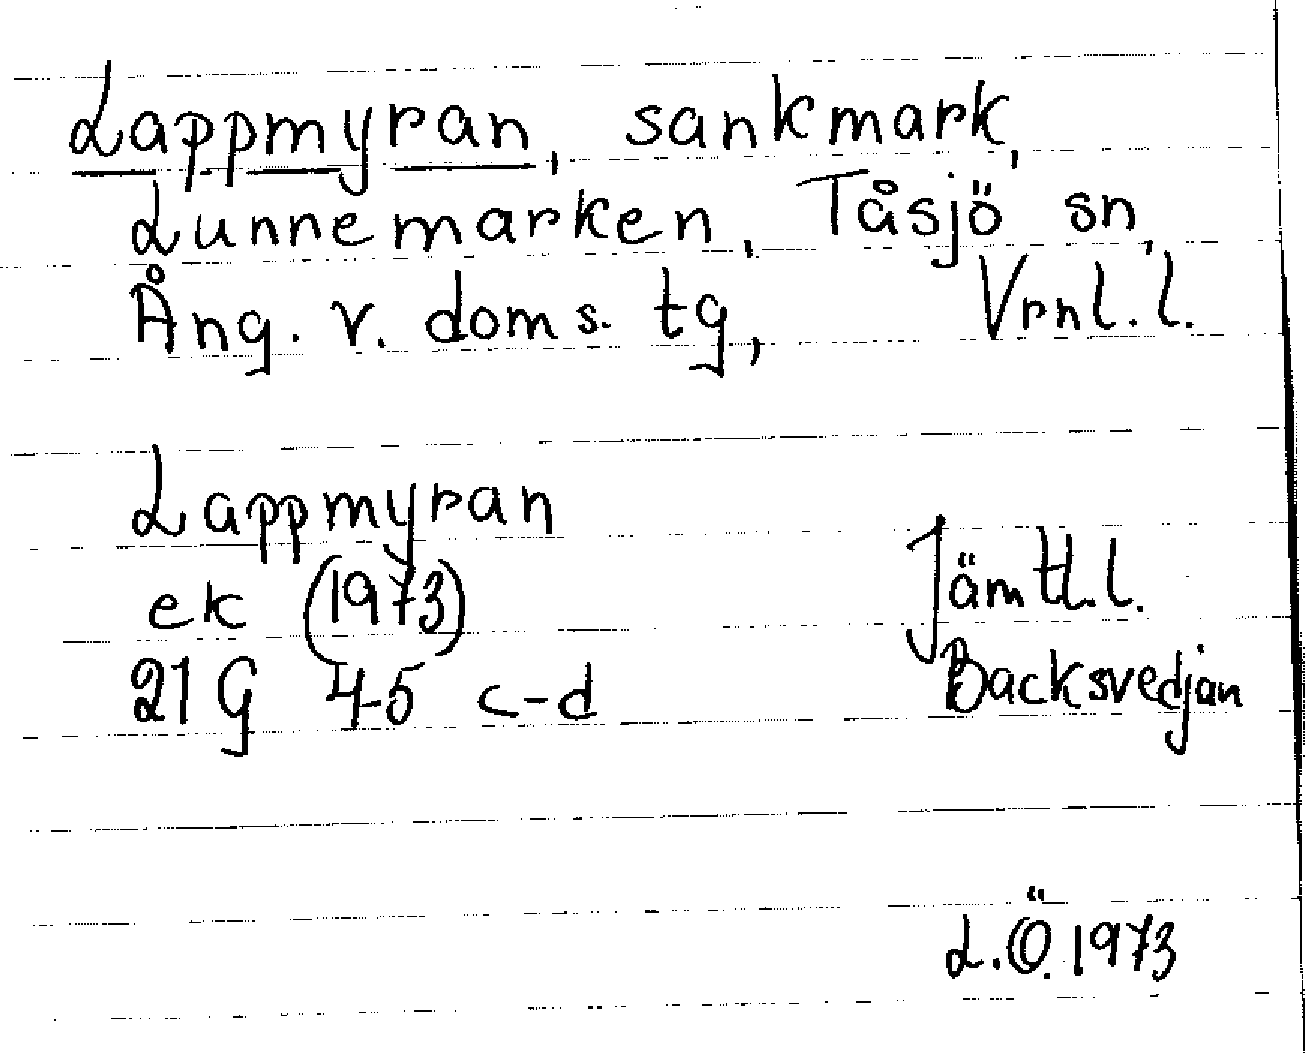 Lappmyran, sankmark,
Lunnemarken, Tåsjö sn,
Ång. v. doms. tg, Vrnl. l.
Lappmyran
ek (1973) Jämtl. l.
21 G 4-5 c-d Backsvedjan
L.Ö. 1973